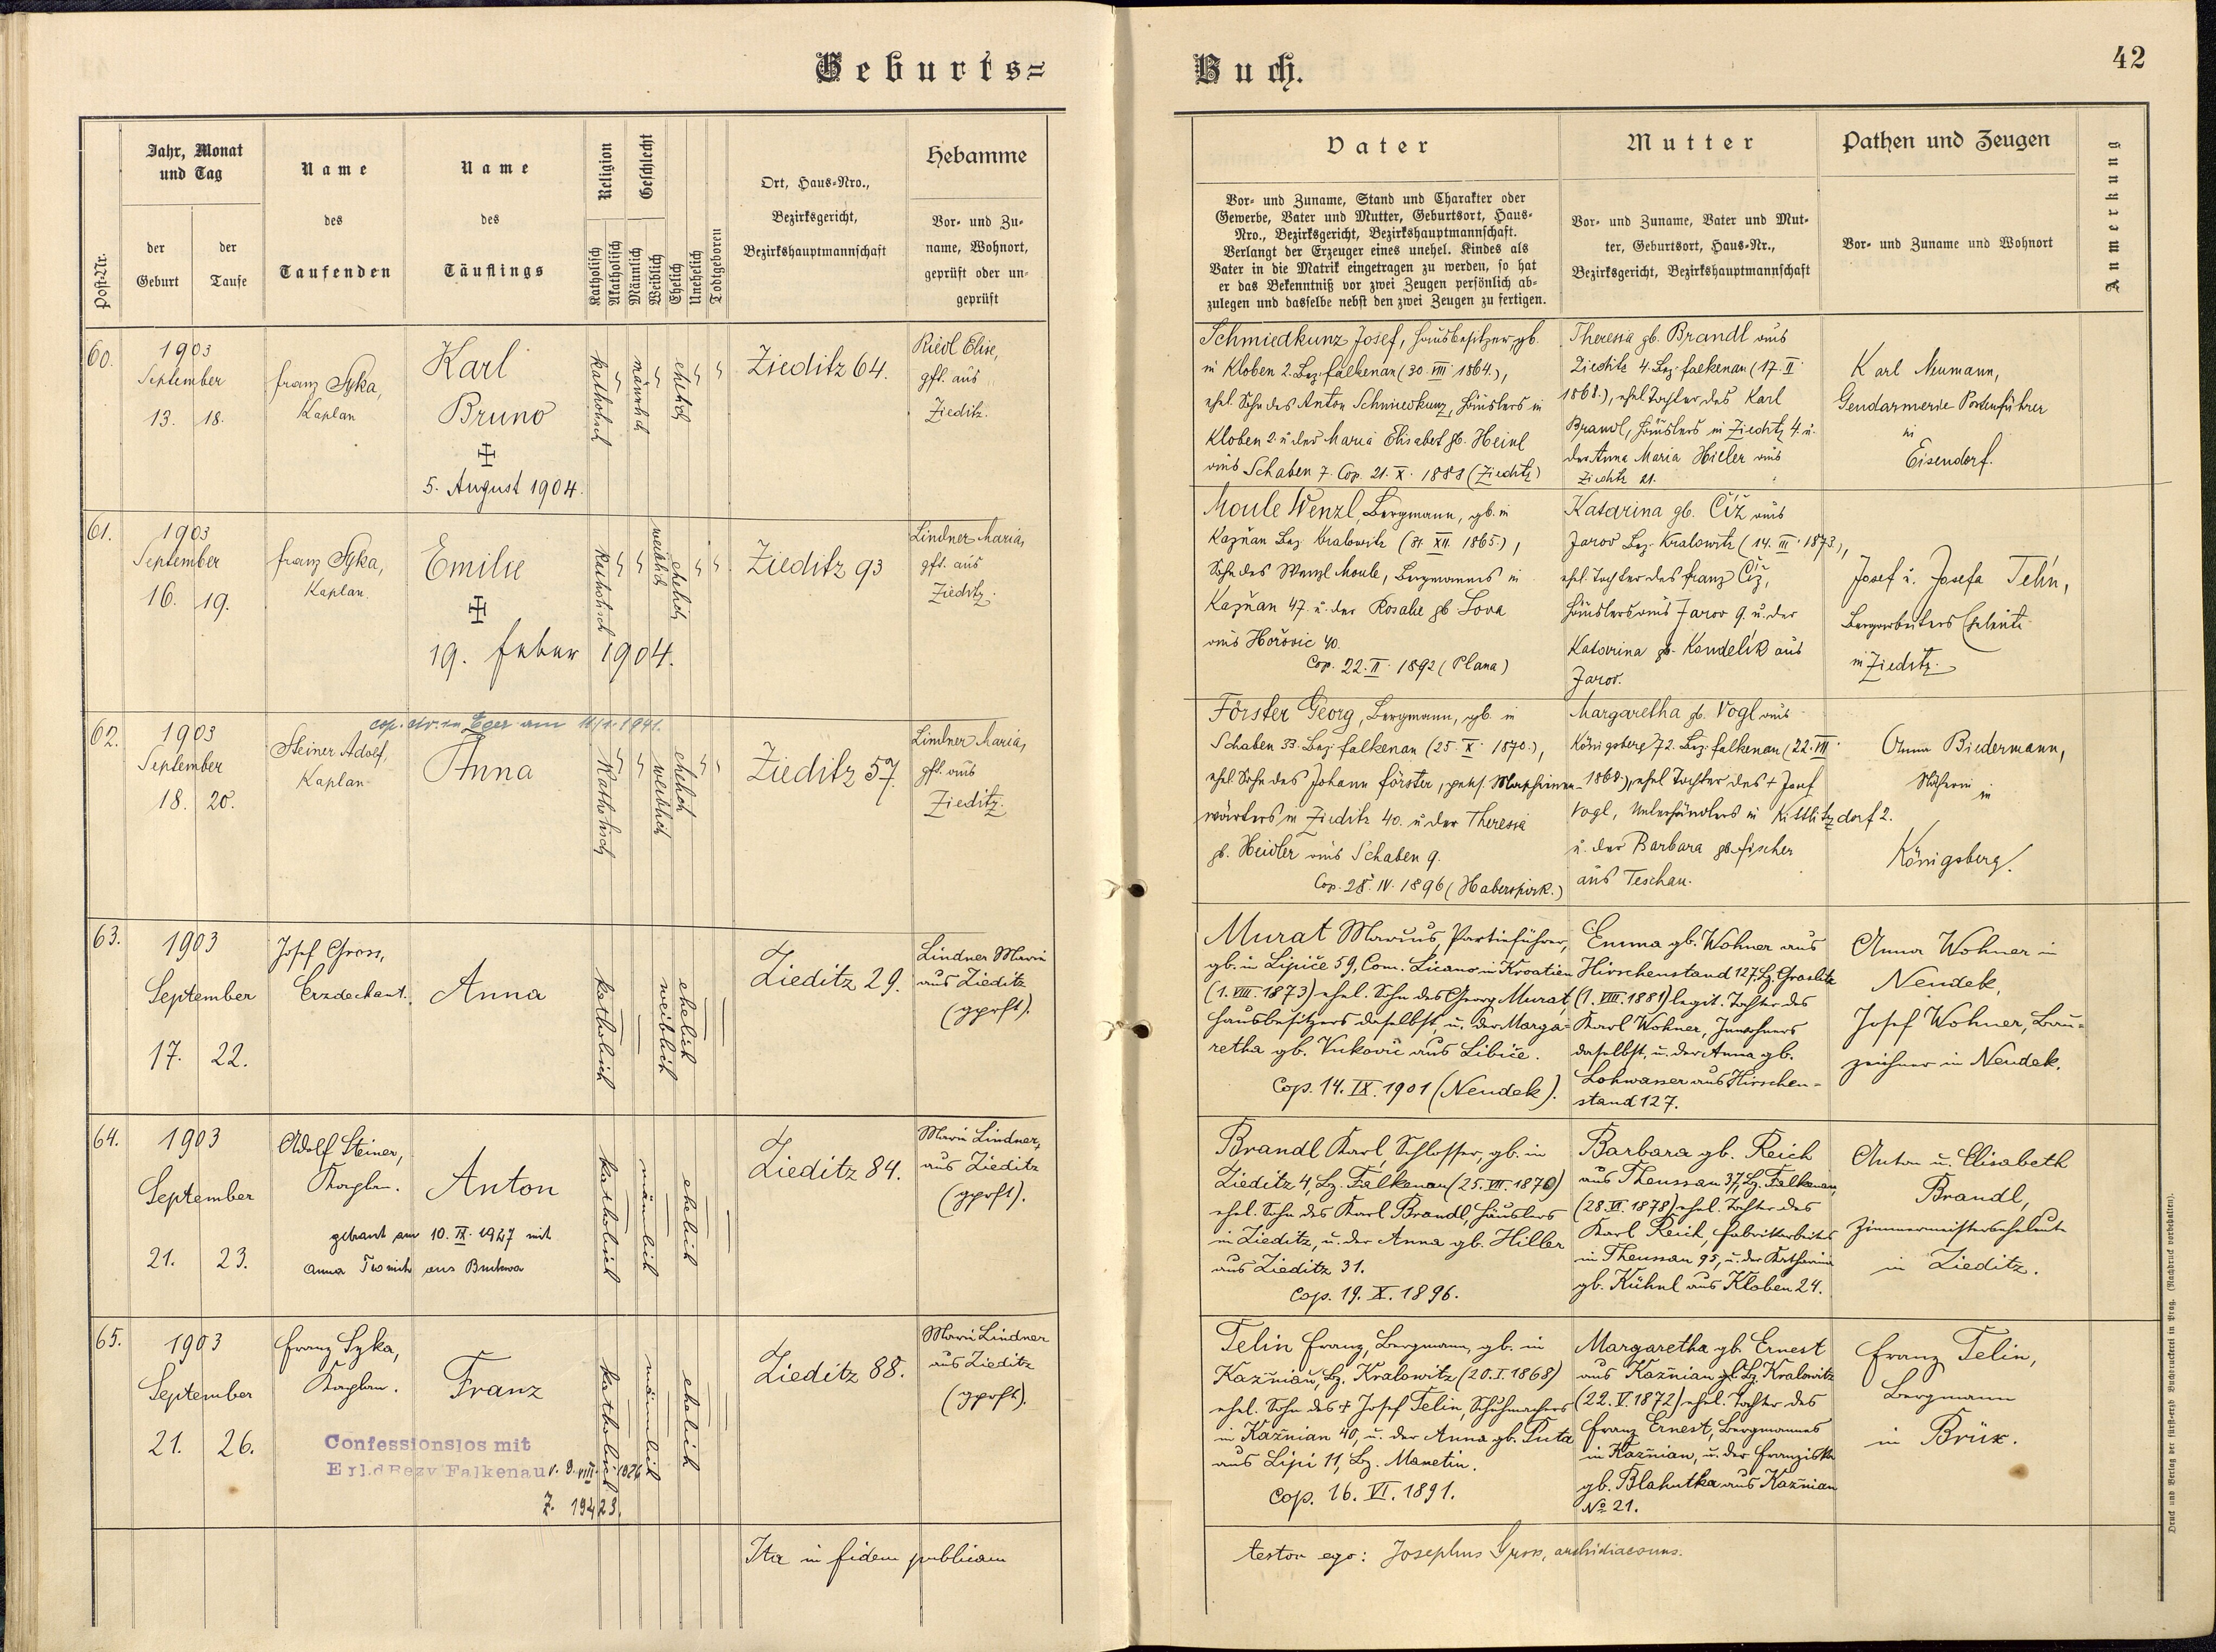 Geburts=
Buch.
42
Post-Nr.
Jahr, Monat
und Tag
der
Geburt
der
Taufe
Name
des
Taufenden
Name
des
Täuflings
Religion
Katholisch
Akatholisch
Geschlecht
Männlich
Weiblich
Ehelich
Unehelich
Todtgeboren
Ort, Haus-Nro.,
Bezirksgericht,
Bezirkshauptmannschaft
Hebamme
Vor- und Zu-
name, Wohnort,
geprüft oder un-
geprüft
Vater
Vor- und Zuname, Stand und Charakter oder
Gewerbe, Vater und Mutter, Geburtsort, Haus-
Nro., Bezirksgericht, Bezirkshauptmannschaft.
Verlangt der Erzeuger eines unehel. Kindes als
Vater in die Matrik eingetragen zu werden, so hat
er das Bekenntniß vor zwei Zeugen persönlich ab-
zulegen und dasselbe nebst den zwei Zeugen zu fertigen.
Mutter
Vor- und Zuname, Vater und Mut-
ter, Geburtsort, Haus-Nr.,
Bezirksgericht, Bezirkshauptmannschaft
Pathen und Zeugen
Vor- und Zuname und Wohnort
Anmerkung
60.
1903
September
13. 18.
Franz Syka,
Kaplan
Karl
Bruno
5. August 1904.
katholisch
männlich
ehelich
Zieditz 64.
Riedl Elise,
gft. aus
Zieditz.
Schmiedkunz Josef, Hausbesitzer, gb.
in Kloben 2. Bez. Falkenau (30. VIII. 1864.),
ehel. Sohn des Anton Schmiedkunz, Häuslers in
Kloben 2. u. der Maria Elisabet gb. Heinl
aus Schaben 7. Cop. 21. X. 1888 (Zieditz)
Theresia gb. Brandl aus
Zieditz 4. Bez. Falkenau (17. II.
1868.), ehel. Tochter des Karl
Brandl, Häuslers in Zieditz 4. u.
der Anna Maria Hieler aus
Zieditz 21.
Karl Neumann,
Gendarmerie Postenführer
in
Eisendorf.
61.
1903
September
16. 19.
Franz Syka,
Kaplan.
Emilie
19. Feber 1904.
Katholisch
weiblich
ehelich
Zieditz 93
Lindner Maria,
gft. aus
Zieditz.
Moule Wenzl, Bergmann, gb. in
Kaznan Bez. Kralowitz (31. XII. 1865.),
Sohn des Wenzl Moule, Bergmannes in
Kaznan 47. u. der Rosalie gb. Sova
aus Hořovic 40.
Cop. 22. II. 1892 (Plana)
Katarina gb. Čiž aus
Jarov Bez. Kralowitz (14. III. 1873.),
ehel. Tochter des Franz Čiž,
Häuslers aus Jarov 9. u. der
Katarina gb. Kandelik aus
Jarov.
Josef u. Josefa Telin,
Bergarbeiters Eheleute
in Zieditz.
62.
cop. civ. in Eger am 11/1. 1941.
1903
September
18. 20.
Steiner Adolf,
Kaplan
Anna
Katholisch
weiblich
ehelich
Zieditz 57.
Lindner Maria,
gft. aus
Zieditz.
Förster Georg, Bergmann, gb. in
Schaben 33. Bez. Falkenau (25. X. 1870.),
ehel. Sohn des Johann Förster, pens. Maschinen-
wärters in Zieditz 40. u. der Theresia
gb. Heidler aus Schaben 9.
Cop. 28. IV. 1896 (Haberspirk.)
Margaretha gb. Vogl aus
Königsberg 72. Bez. Falkenau (22. VII.
1868.), ehel. Tochter des + Josef
Vogl, Unterhändlers in Kittlitzdorf 2.
u. der Barbara gb. Fischer
aus Teschau.
Anna Biedermann,
Näherin in
Königsberg.
63.
1903
September
17. 22.
Josef Gross,
Erzdechant.
Anna
katholisch
weiblich
ehelich
Zieditz 29.
Lindner Marie
aus Zieditz
(gprft).
Murat Marcus, Partieführer,
gb. in Lipiče 59, Com. Licano in Kroatien
(1. VIII. 1873) ehel. Sohn des Georg Murat,
Hausbesitzers daselbst, u. der Marga-
retha gb. Vukovič aus Libiče.
Cop. 14. IX. 1901 (Neudek).
Emma gb. Wohner aus
Hirschenstand 127, Bz. Graslitz
(1. VIII. 1881) legit. Tochter des
Karl Wohner, Inwohners
daselbst, u. der Anna gb.
Lohwasser aus Hirschen-
stand 127.
Anna Wohner in
Neudek,
Josef Wohner, Bau-
zeichner in Neudek.
64.
1903
September
21. 23.
Adolf Steiner,
Kaplan.
Anton
getraut am 10. IX. 1927 mit
Anna aus Buckwa
katholisch
männlich
ehelich
Zieditz 84.
Marie Lindner,
aus Zieditz
(gprft).
Brandl Karl, Schlosser, gb. in
Zieditz 4, Bz. Falkenau (25. VII. 1870)
ehel. Sohn des Karl Brandl, Häuslers
in Zieditz, u. der Anna gb. Hiller
aus Zieditz 31.
Cop. 19. X. 1896.
Barbara gb. Reich
aus Theussau 37, Bz. Falkenau,
(28. VI. 1878) ehel. Tochter des
Karl Reich, Fabriksarbeiters
in Theussau 95, u. der Katharina
gb. Kühnl aus Kloben 24.
Anton u. Elisabeth
Brandl,
Zimmermeisterseheleute
in Zieditz.
65.
1903
September
21. 26.
Franz Syka,
Kaplan.
Franz
Confessionslos mit
Erl. d Bezv Falkenau v. 9. VIII. 1926
Z. 19423.
katholisch
männlich
ehelich
Zieditz 88.
Marie Lindner
aus Zieditz
(gprft).
Telin Franz, Bergmann, gb. in
Kaznian, Bz. Kralowitz (20. I. 1868)
ehel. Sohn des + Josef Telin, Schuhmachers
in Kaznian 40, u. der Anna gb. Puta
aus Lipi 11, Bz. Manetin.
Cop. 16. VI. 1891.
Margaretha gb. Ernest
aus Kaznian 21 Bz. Kralowitz
(22. V. 1872) ehel. Tochter des
Franz Ernest, Bergmannes
in Kaznian, u. der Franziska
gb. Blahutka aus Kaznian
No 21.
Franz Telin,
Bergmann
in Brüx.
Ita in fidem publicam
testor ego: Josephus Gross, archidiaconus.
Druck und Verlag der fürst-erzb Buchdruckerei in Prag. (Nachdruck vorbehalten).